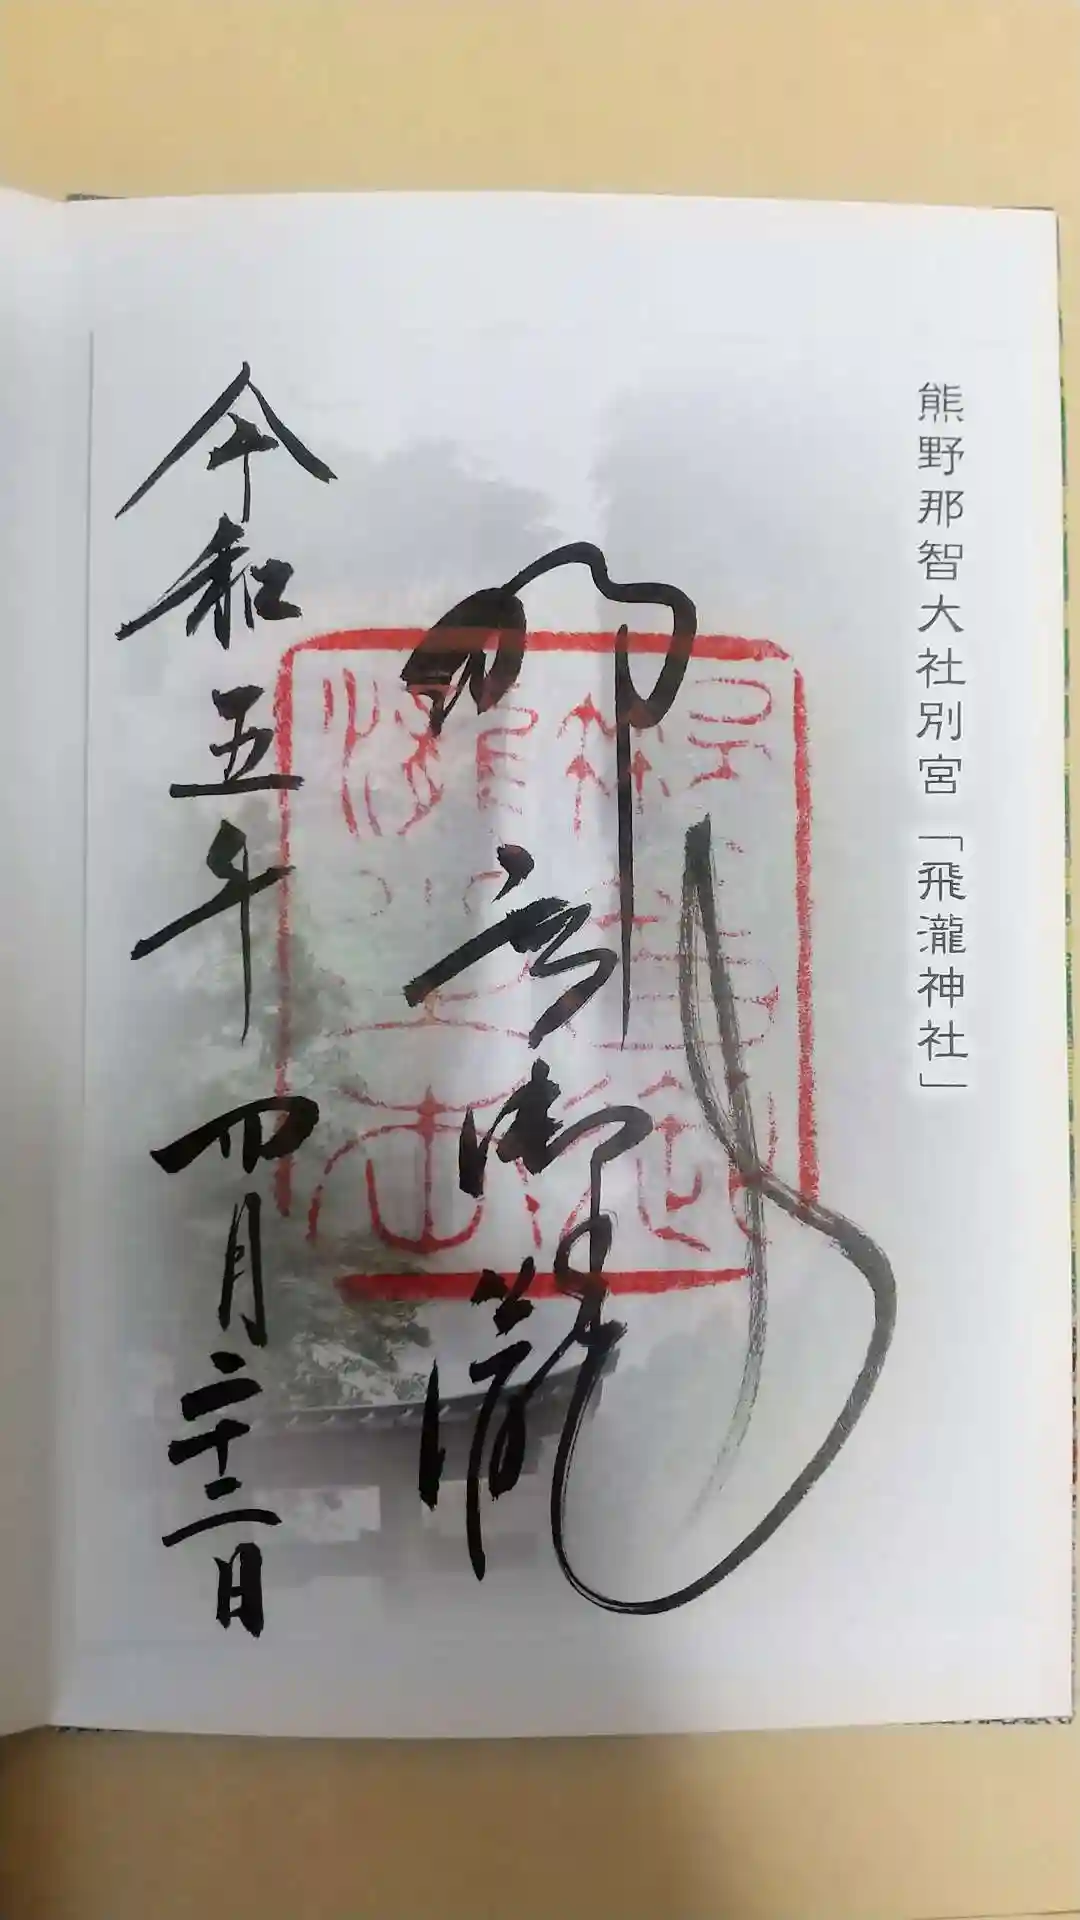 熊野那智大社別宮「飛瀧神社」
那智御瀧
令和五年四月二十二日